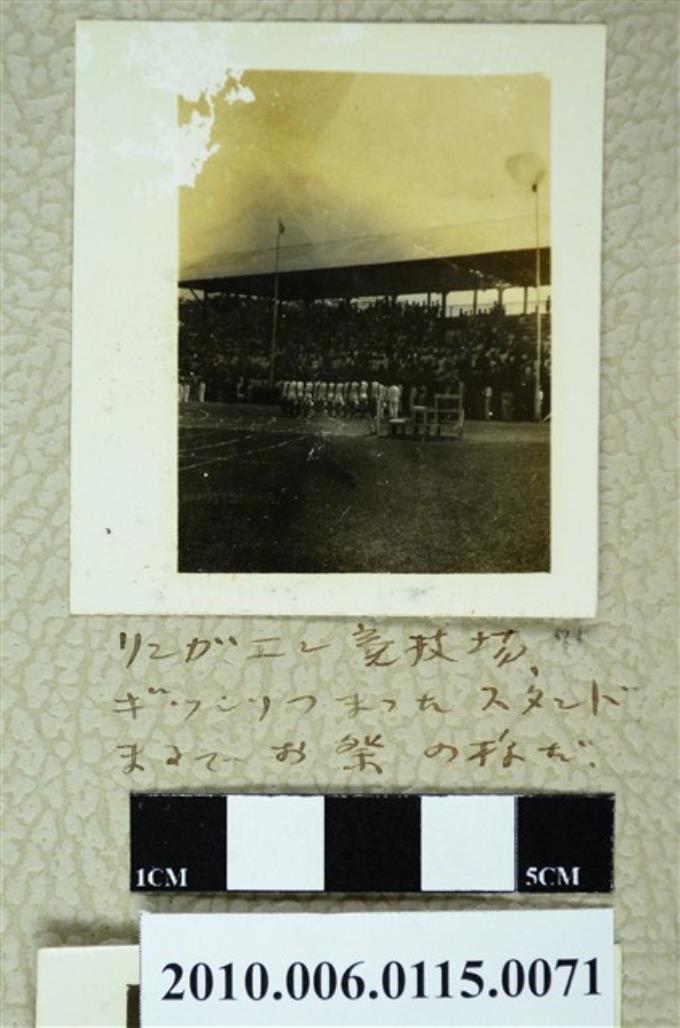 リンガエン競技場、
ギッシリつまったスタンド
まるでお祭の様だ.
1CM
5CM
2010.006.0115.0071